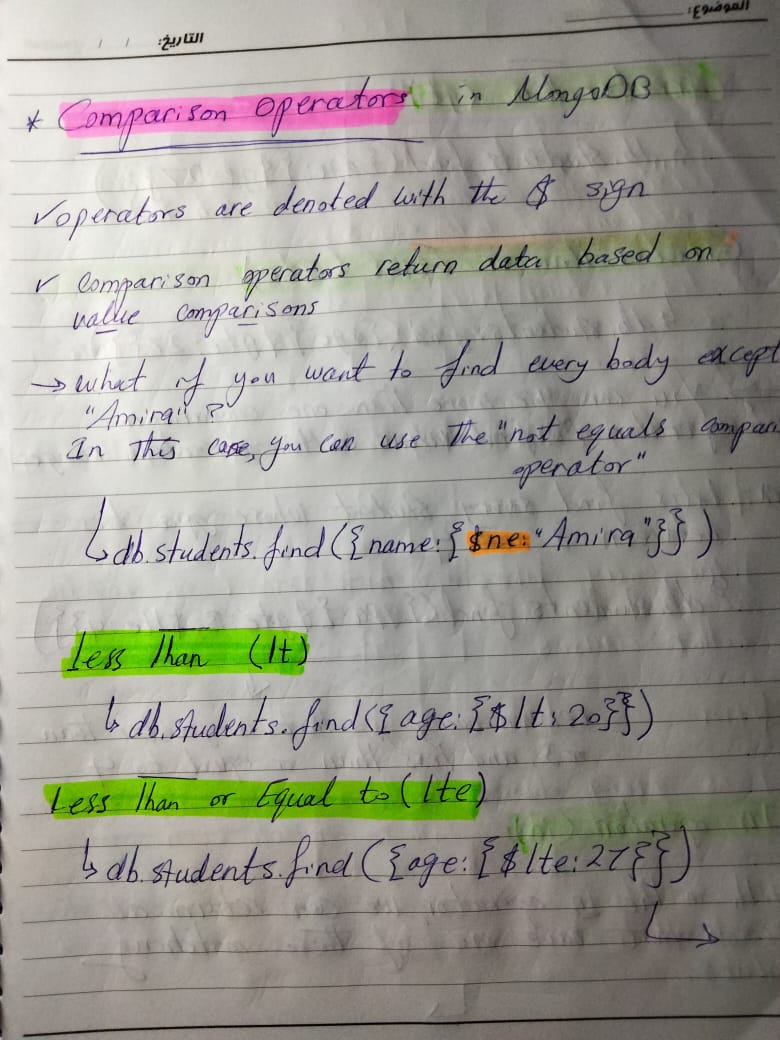 الموضوع:
التاريخ: / /
* Comparison operators in MongoDB
✓ operators are denoted with the $ sign
✓ Comparison operators return data based on
value comparisons
→ what if you want to find every body except
"Amira" ?
In This case, you can use The "not equals compari
operator"
↳ db.students.find({name:{$ne:"Amira"}})
Less Than (lt)
↳ db.students.find({age:{$lt:20}})
Less Than or Equal to (lte)
↳ db.students.find({age:{$lte:27}})